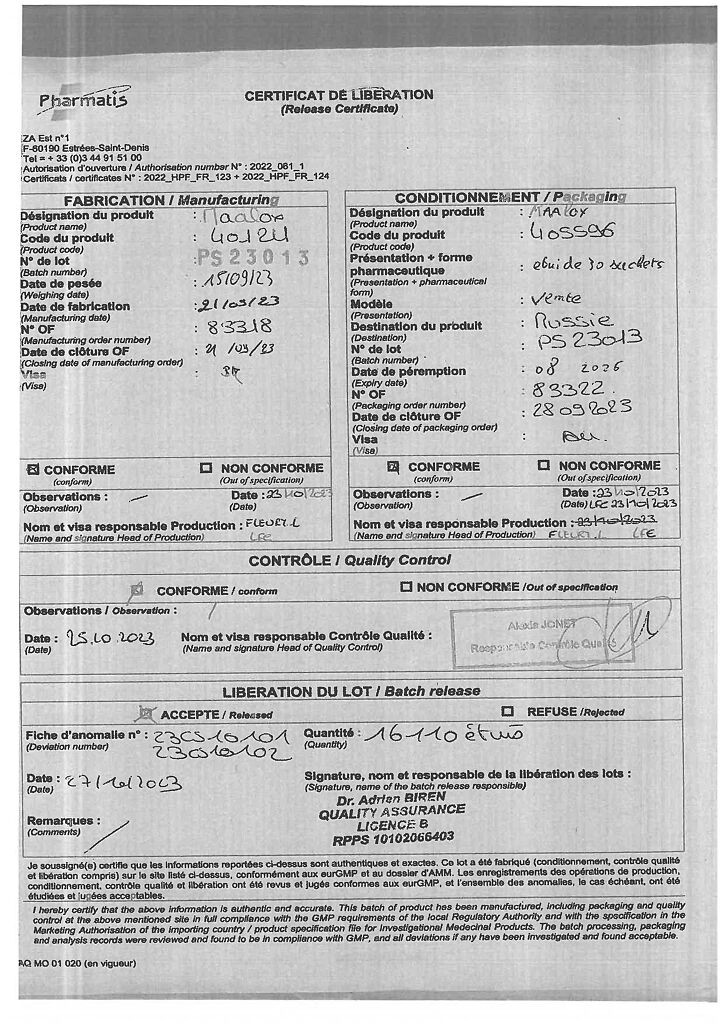 Pharmatis
CERTIFICAT DE LIBERATION
(Release Certificate)
ZA Est n°1
F-60190 Estrées-Saint-Denis
Tel = + 33 (0)3 44 91 51 00
Autorisation d'ouverture / Authorisation number N° : 2022_061_1
Certificats / certificates N° : 2022_HPF_FR_123 + 2022_HPF_FR_124
FABRICATION / Manufacturing
Désignation du produit : Maalox
(Product name)
Code du produit : 4012U
(Product code)
N° de lot : PS23013
(Batch number)
Date de pesée : 15/09/23
(Weighing date)
Date de fabrication : 21/09/23
(Manufacturing date)
N° OF : 83318
(Manufacturing order number)
Date de clôture OF : 21/09/23
(Closing date of manufacturing order)
Visa :
(Visa)
CONFORME NON CONFORME
(conform) (Out of specification)
Observations : Date : 23/10/2023
(Observation) (Date)
Nom et visa responsable Production : FLEURY.L
(Name and signature Head of Production) LFE
CONDITIONNEMENT / Packaging
Désignation du produit : MAALOX
(Product name)
Code du produit : 405596
(Product code)
Présentation + forme
pharmaceutique : etui de 30 sachets
(Presentation + pharmaceutical
form)
Modèle : Vente
(Presentation)
Destination du produit : Russie
(Destination)
N° de lot : PS23013
(Batch number)
Date de péremption : 08 2026
(Expiry date)
N° OF : 83322
(Packaging order number)
Date de clôture OF : 28 09 2023
(Closing date of packaging order)
Visa :
(Visa)
CONFORME NON CONFORME
(conform) (Out of specification)
Observations : Date : 23/10/2023
(Observation) (Date) LFE 23/10/2023
Nom et visa responsable Production : 23/10/2023
(Name and signature Head of Production) FLEURY.L LFE
CONTRÔLE / Quality Control
CONFORME / conform NON CONFORME /Out of specification
Observations / Observation : /
Date : 25.10.2023 Nom et visa responsable Contrôle Qualité :
(Date) (Name and signature Head of Quality Control)
Alexis JONET
Responsable Contrôle Qualité
LIBERATION DU LOT / Batch release
ACCEPTE / Released REFUSE /Rejected
Fiche d'anomalie n° : 23CS10101 Quantité : 16110 étuis
(Deviation number) 23CS10102 (Quantity)
Date : 27/10/2023 Signature, nom et responsable de la libération des lots :
(Date) (Signature, name of the batch release responsible)
Dr. Adrien BIREN
QUALITY ASSURANCE
LICENCE B
RPPS 10102066403
Remarques : /
(Comments)
Je soussigné(e) certifie que les informations reportées ci-dessus sont authentiques et exactes. Ce lot a été fabriqué (conditionnement, contrôle qualité
et libération compris) sur le site listé ci-dessus, conformément aux eurGMP et au dossier d'AMM. Les enregistrements des opérations de production,
conditionnement, contrôle qualité et libération ont été revus et jugés conformes aux eurGMP, et l'ensemble des anomalies, le cas échéant, ont été
étudiées et jugées acceptables.
I hereby certify that the above information is authentic and accurate. This batch of product has been manufactured, including packaging and quality
control at the above mentioned site in full compliance with the GMP requirements of the local Regulatory Authority and with the specification in the
Marketing Authorisation of the importing country / product specification file for Investigational Medecinal Products. The batch processing, packaging
and analysis records were reviewed and found to be in compliance with GMP, and all deviations if any have been investigated and found acceptable.
AQ MO 01 020 (en vigueur)